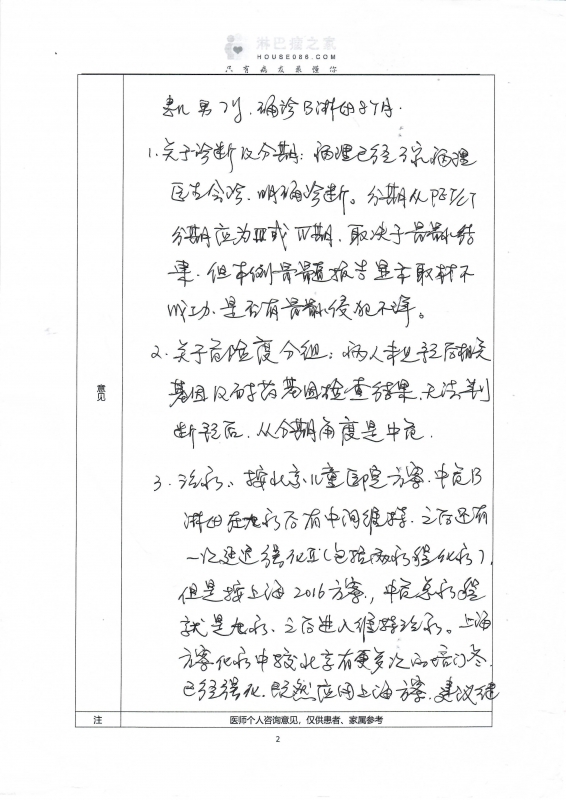 淋巴瘤之家
HOUSE086.COM
只有病友最懂你
患儿 男 7岁,确诊B淋母8个月.
1.关于诊断及分期:病理已经3家病理
医生会诊.明确诊断。分期从PET/CT
分期应为Ⅲ或Ⅳ期.取决于骨髓结
果.但本例骨髓报告显示取材不
成功.是否有骨髓侵犯不详。
2.关于危险度分组:病人未见预后相关
基因及耐药基因检查结果.无法判
断预后.从分期角度是中危.
3.治疗、按北京儿童医院方案.中危B
淋母在九疗后有中间维持.之后还有
一次延迟强化Ⅱ(包括两疗程化疗).
但是按上海2016方案,中危总疗程
就是九疗.之后进入维持治疗。上海
方案化疗中较北京有更多次的培门冬.
已经强化.既然应用上海方案.建议继
意见
注
医师个人咨询意见,仅供患者、家属参考
2